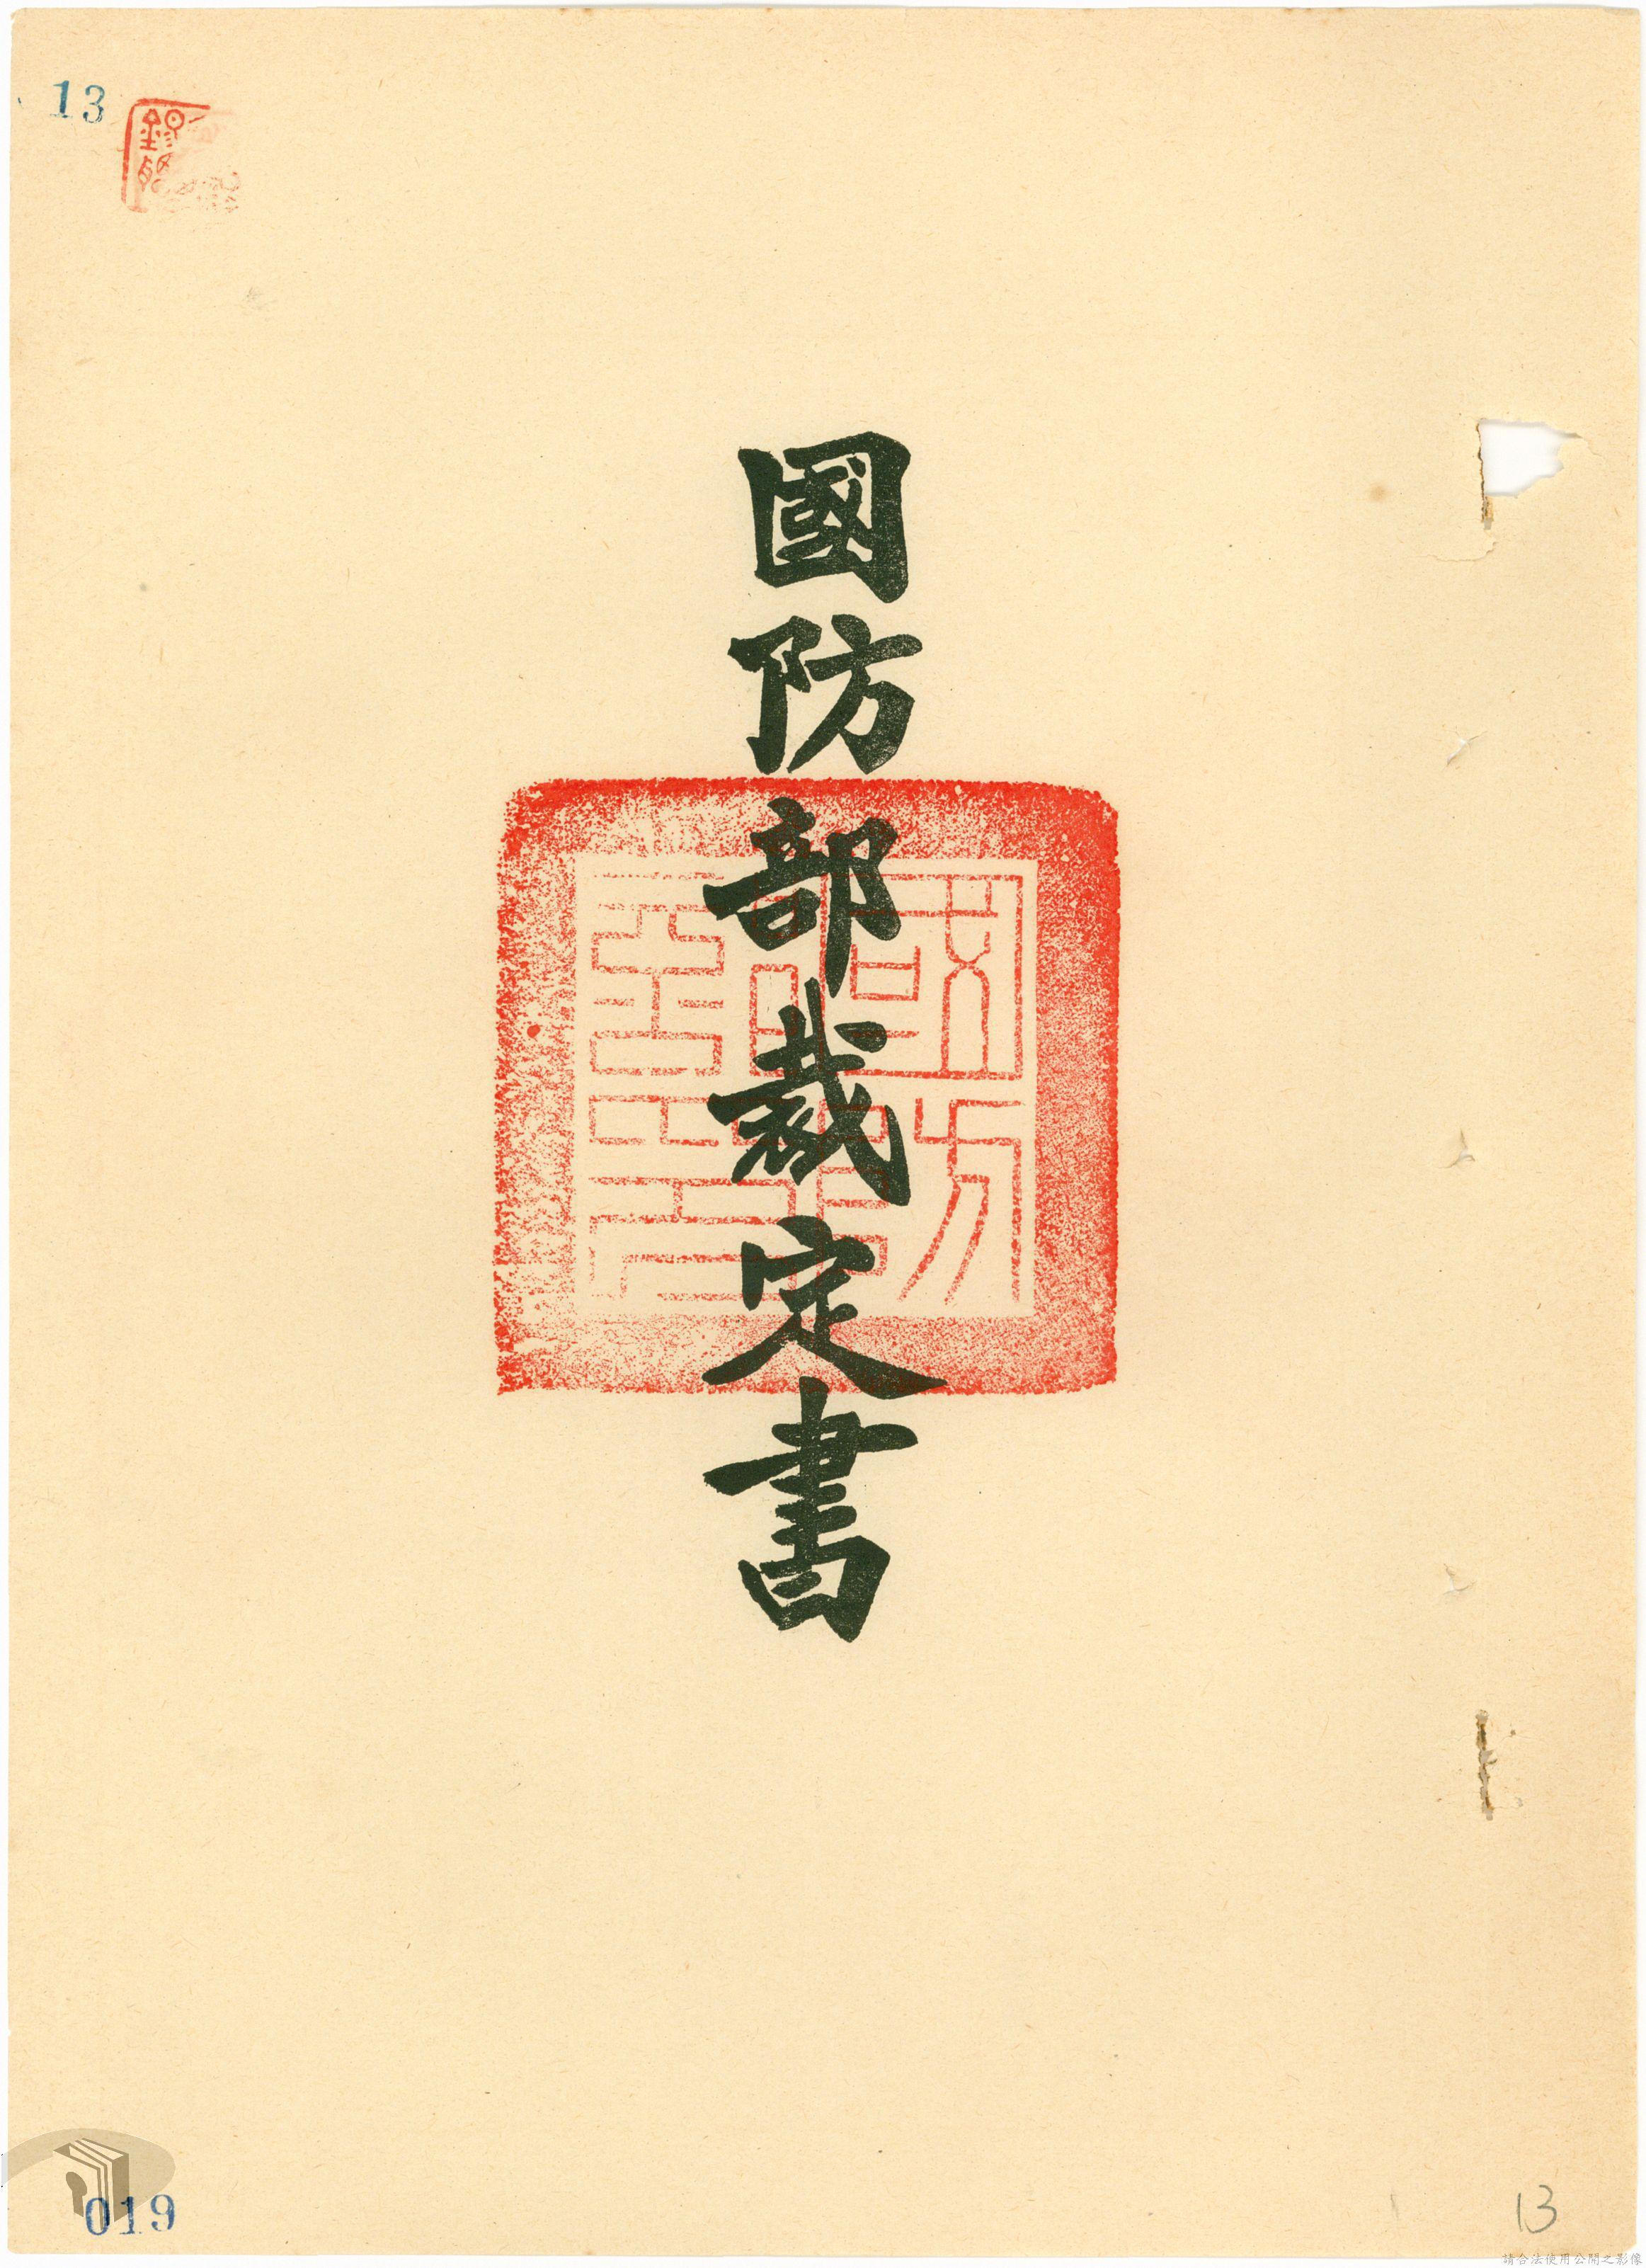 13
國防部裁定書
019
13
請合法使用公開之影像